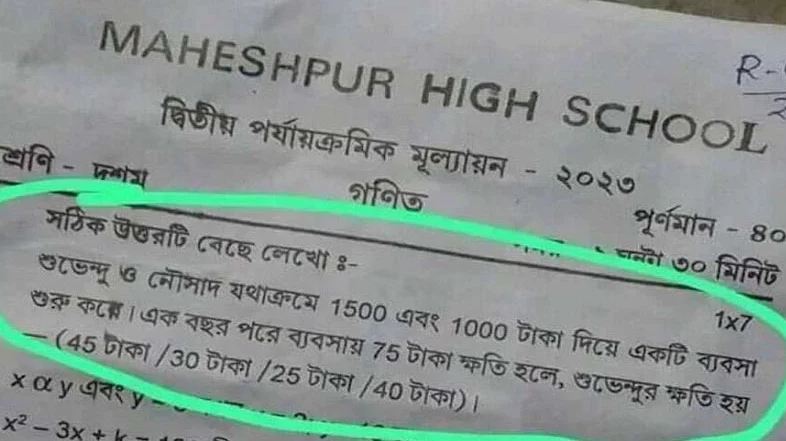 MAHESHPUR HIGH SCHOOL
R-
2
দ্বিতীয় পর্যায়ক্রমিক মূল্যায়ন - ২০২৩
শ্রেণি - দশম
গণিত
পূর্ণমান - 80
৩০ মিনিট
সঠিক উত্তরটি বেছে লেখো ঃ-
1x7
শুভেন্দু ও নৌসাদ যথাক্রমে 1500 এবং 1000 টাকা দিয়ে একটি ব্যবসা
শুরু করে। এক বছর পরে ব্যবসায় 75 টাকা ক্ষতি হলে, শুভেন্দুর ক্ষতি হয়
– (45 টাকা /30 টাকা /25 টাকা /40 টাকা)।
x α y এবং y
x² – 3x + k